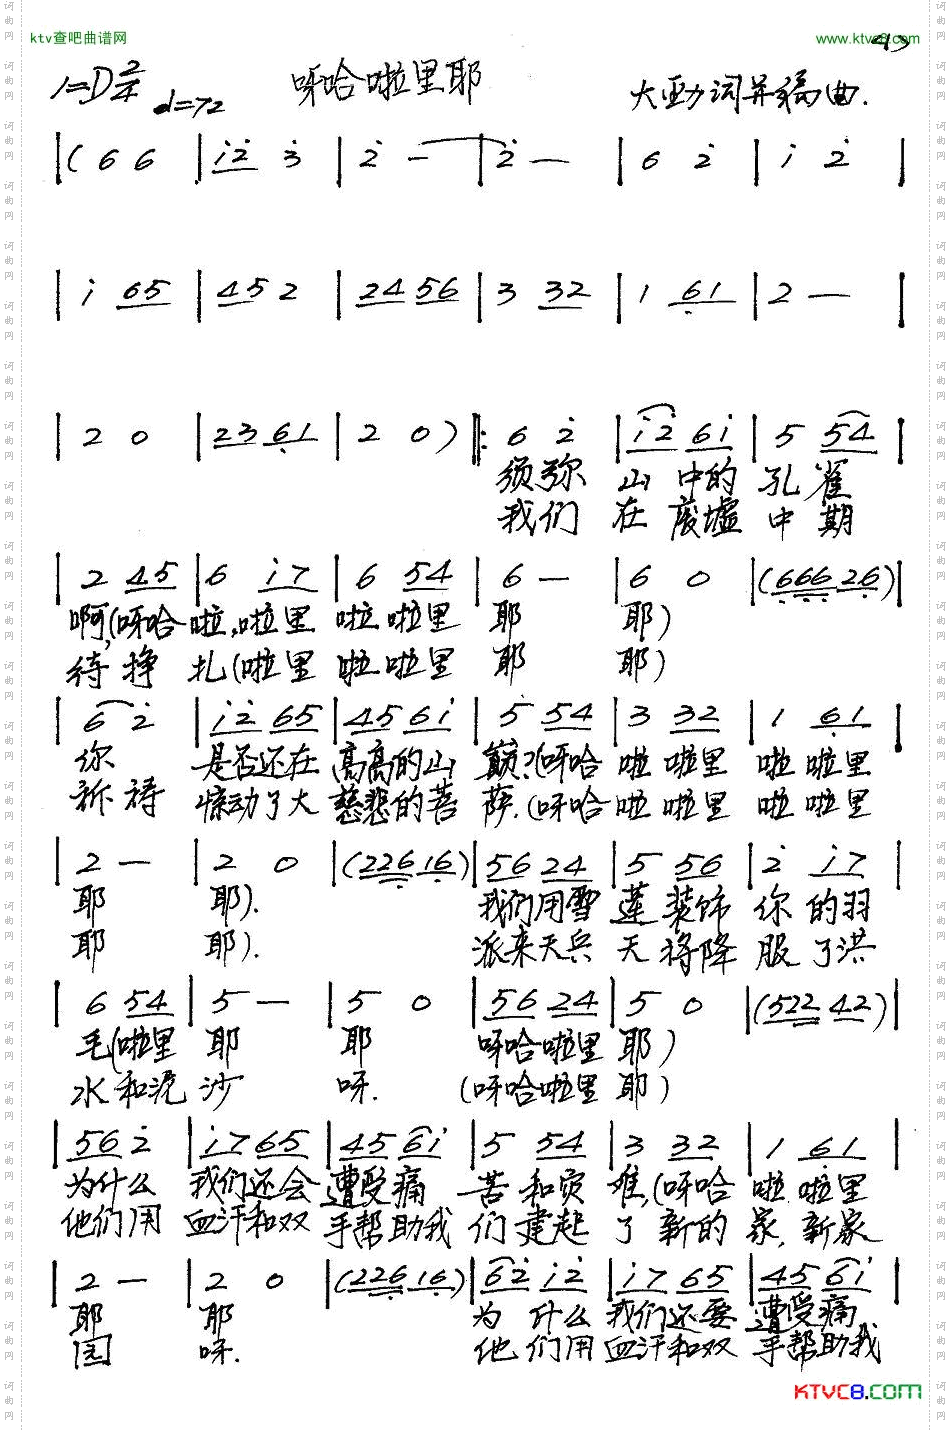 ktv查吧曲谱网 www.ktvc8.com
43
1=D 2/4 d=72 呀哈啦里耶 大勐词并编曲.
|( 6 6 | i̇ 2̇ 3̇ | 2̇ — | 2̇ — | 6 2̇ | i̇ 2̇ |
| i̇ 65 | 45 2 | 24 56 | 3 32 | 1 6̣1 | 2 — |
| 2 0 | 23 6̣1 | 2 0 ) ‖: 6 2̇ | i̇2̇ 6i̇ | 5 54 |
须弥 山 中的 孔 雀
我们 在 废墟 中 期
| 2 45 | 6 i̇7 | 6 54 | 6 — | 6 0 | (6̣6̣6̣ 26̣) |
啊,(呀哈 啦,啦里 啦 啦里 耶 耶)
待 挣 扎(啦里 啦 啦里 耶 耶)
| 6 2̇ | i̇2̇ 65 | 45 6i̇ | 5 54 | 3 32 | 1 6̣1 |
你 是否还在 高高的山 巅?(呀哈 啦 啦里 啦 啦里
祈祷 惊动了大 慈悲的菩 萨.(呀哈 啦 啦里 啦 啦里
| 2 — | 2 0 | (226̣ 16̣) | 56 24 | 5 56 | 2̇ i̇7 |
耶 耶). 我们用雪 莲 装饰 你 的羽
耶 耶). 派来天兵 天 将降 服 了洪
| 6 54 | 5 — | 5 0 | 56 24 | 5 0 | (522 42) |
毛(啦里 耶 耶 呀哈啦里 耶)
水 和泥 沙 呀. (呀哈啦里 耶)
| 56 2̇ | i̇7 65 | 45 6i̇ | 5 54 | 3 32 | 1 6̣1 |
为什么 我们还会 遭受痛 苦 和灾 难,(呀哈 啦 啦里
他们用 血汗和双 手帮助我 们 建起 了 新的 家,新家
| 2 — | 2 0 | (226̣ 16̣) | 62̇ i̇2̇ | i̇7 65 | 45 6i̇ |
耶 耶 为 什么 我们还要 遭受痛
园 呀. 他 们用 血汗和双 手帮助我
KTVC8.COM